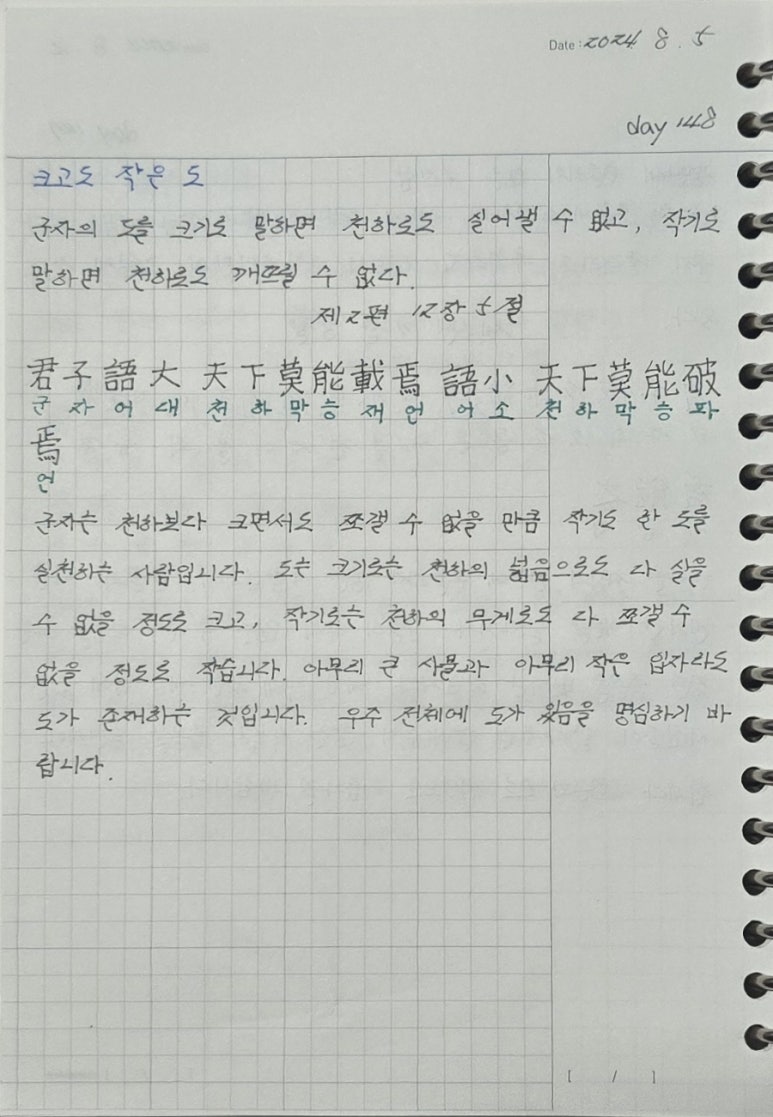 Date : 2024. 8. 5
day 148
크고도 작은 도
군자의 도를 크기로 말하면 천하로도 실어낼 수 없고, 작기로
말하면 천하로도 깨뜨릴 수 없다.
제2편 12장 5절
君子語大 天下莫能載焉 語小 天下莫能破
군자어대 천하막능재언 어소 천하막능파
焉
언
군자는 천하보다 크면서도 쪼갤 수 없을 만큼 작기도 한 도를
실천하는 사람입니다. 도는 크기로는 천하의 넓음으로도 다 실을
수 없을 정도로 크고, 작기로는 천하의 무게로도 다 쪼갤 수
없을 정도로 작습니다. 아무리 큰 사물과 아무리 작은 입자라도
도가 존재하는 것입니다. 우주 전체에 도가 있음을 명심하기 바
랍니다.
[ / ]